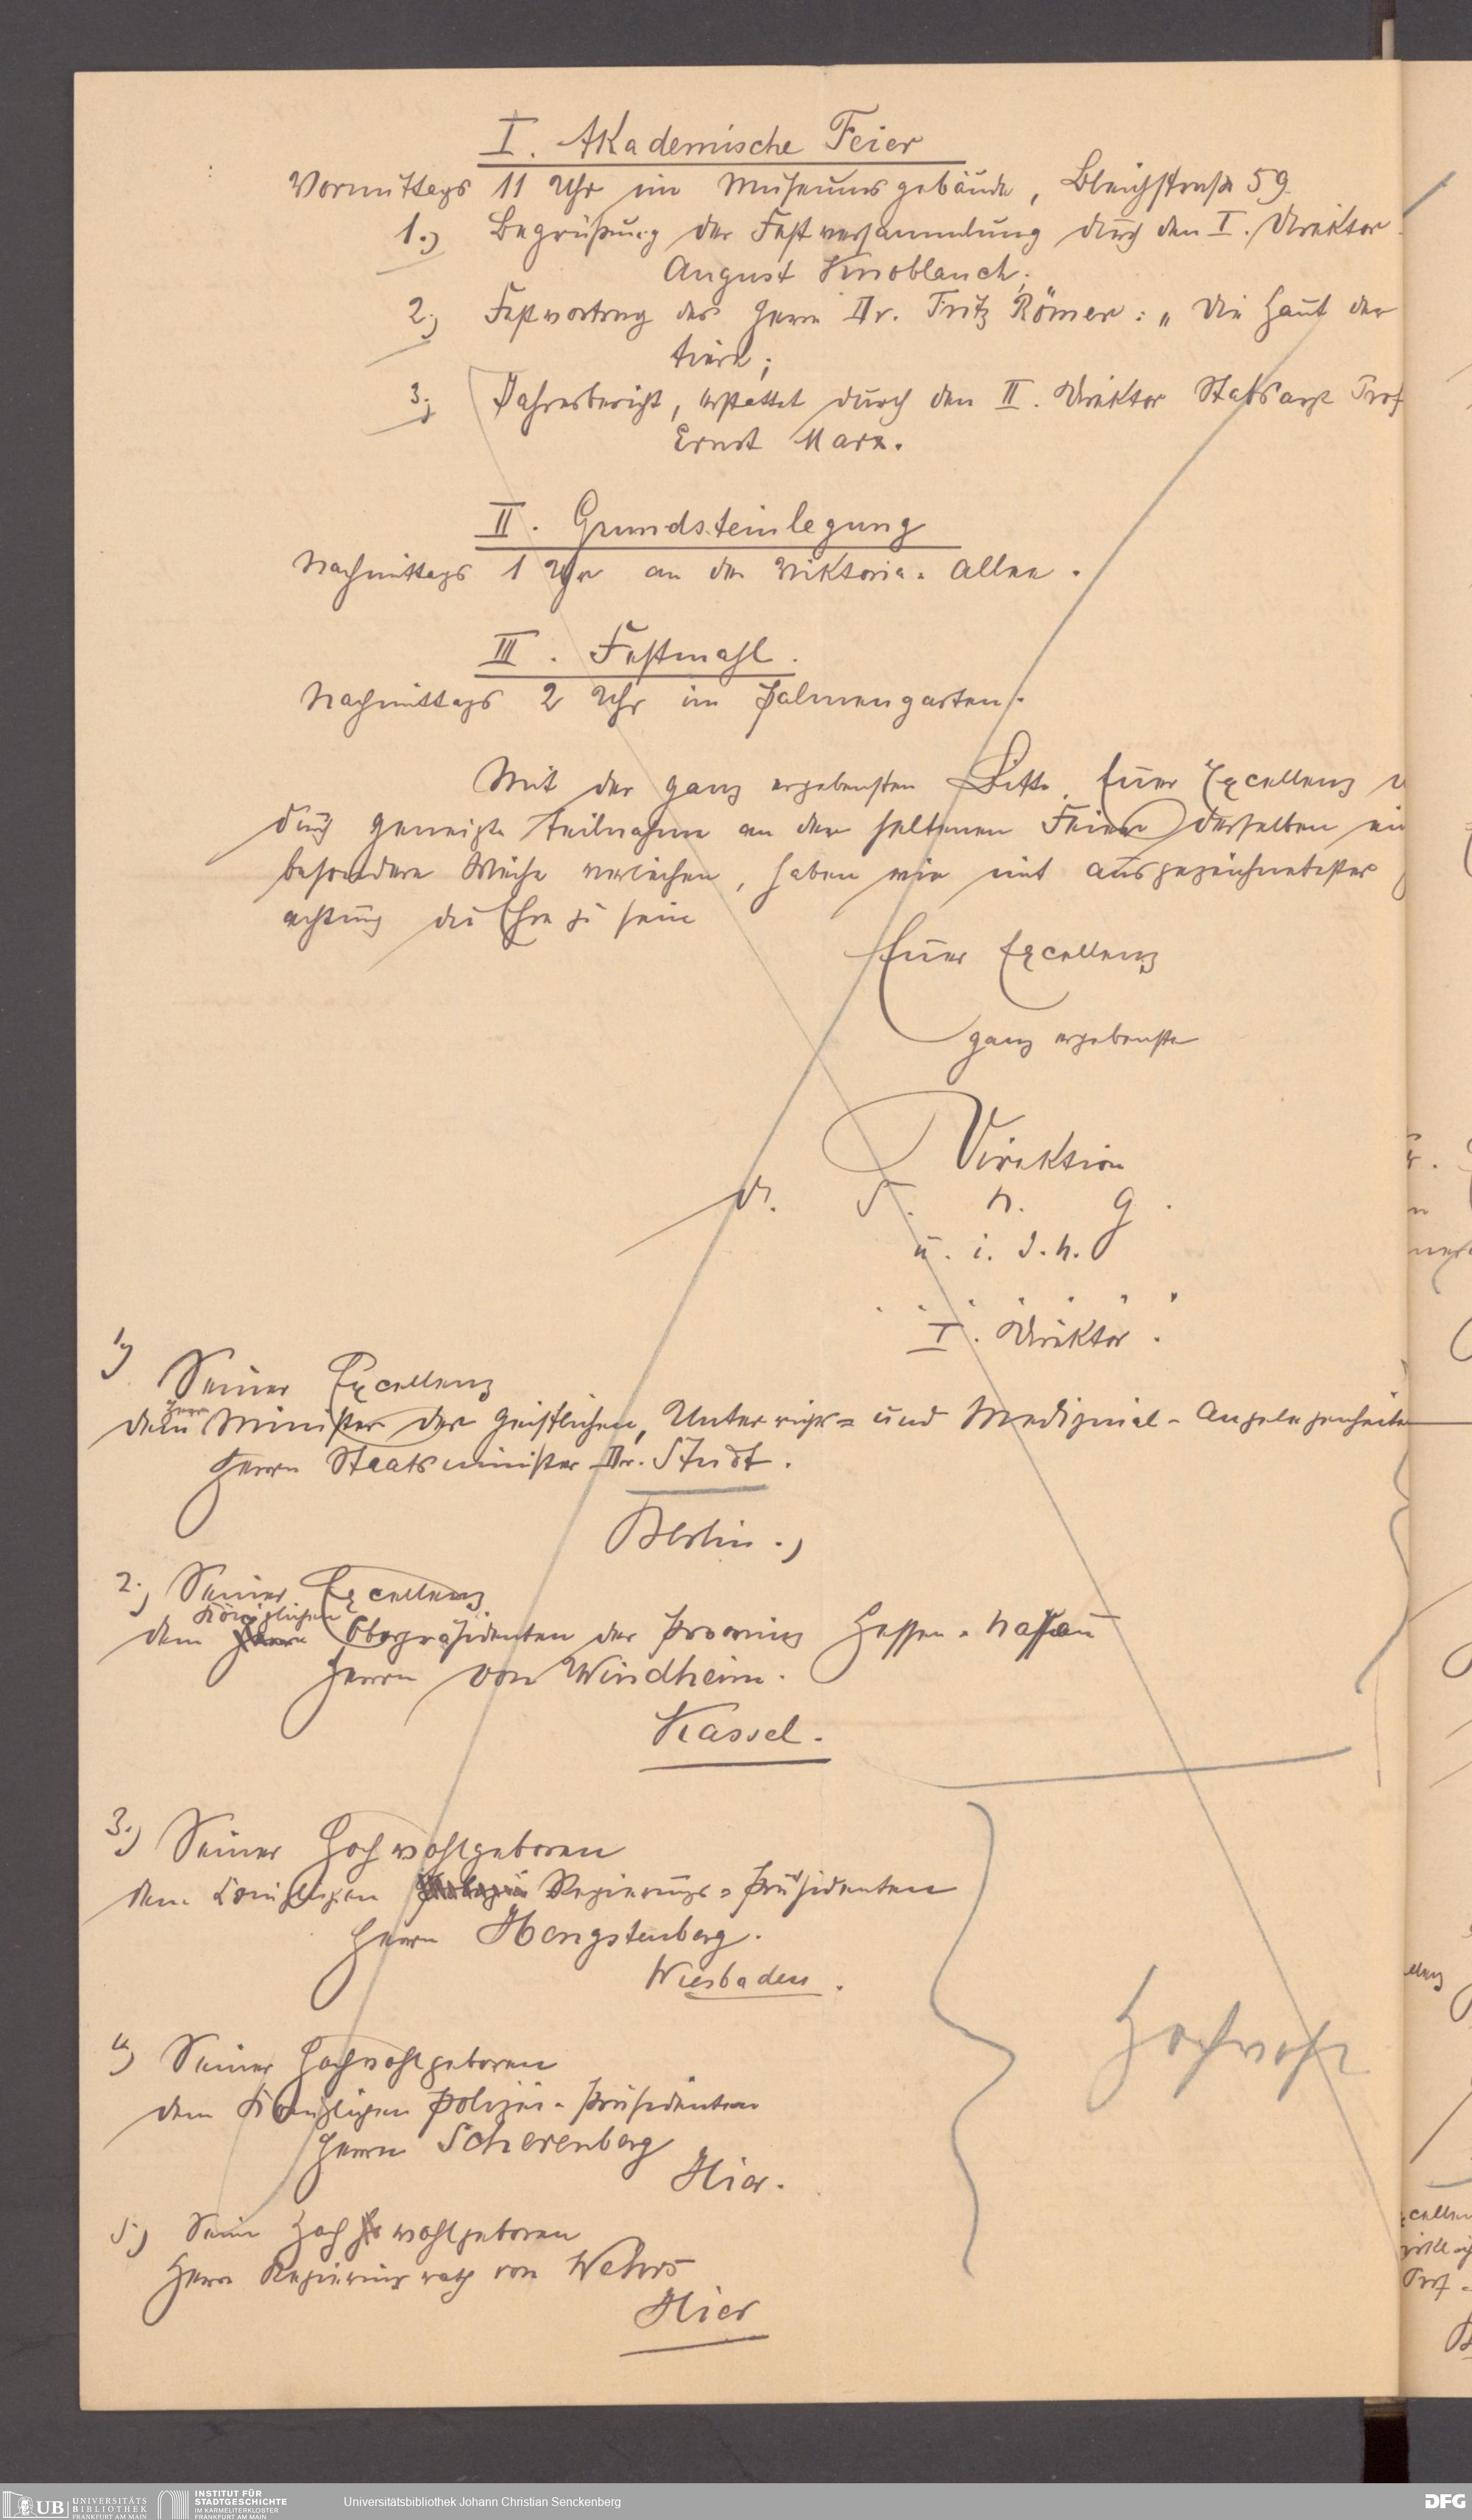 I. Akademische Feier
Vormittags 11 Uhr im Museumsgebäude, Bleichstraße 59.
1.) Begrüßung der Festversammlung durch den I. Direktor
August Knoblauch;
2.) Festvortrag des Herrn Dr. Fritz Römer: „Die Haut der
Tiere;
3.) Jahresbericht, erstattet durch den II. Direktor Stabsarzt Prof
Ernst Marx.
II. Grundsteinlegung
Nachmittags 1 Uhr an der Viktoria-Allee.
III. Festmahl.
Nachmittags 2 Uhr im Palmengarten.
Mit der ganz ergebensten Bitte, Euer Excellenz
durch geneigte Teilnahme an der seltenen Feier derselben ein
besondere Weihe verleihen, haben wir mit ausgezeichnetster
achtung die Ehre zu sein
Euer Excellenz
ganz ergebenste
Direktion
d. S. N. G.
u. i. d. N.
. . . . . . .
I. Direktor.
1) Seiner Excellenz
Herrn
dem Minister der Geistlichen, Unterrichts- und Medizinal-Angelegenheiten
Herrn Staatsminister Dr. Studt.
Berlin.
2.) Seiner Excellenz
Königlichen
dem Herrn Oberpräsidenten der Provinz Hessen-Nassau
Herrn von Windheim.
Kassel.
3.) Seiner Hochwohlgeboren
dem Königlichen Regierungs-Präsidenten
Herrn Hengstenberg.
Wiesbaden.
4) Seiner Hochwohlgeboren
dem Königlichen Polizei-Präsidenten
Herrn Scherenberg
Hier.
Hochwohl
5.) Seiner Hochwohlgeboren
Herrn Regierungsrath von Wehrs
Hier
UB UNIVERSITÄTS
BIBLIOTHEK
FRANKFURT AM MAIN
INSTITUT FÜR
STADTGESCHICHTE
IM KARMELITERKLOSTER
FRANKFURT AM MAIN
Universitätsbibliothek Johann Christian Senckenberg
DFG